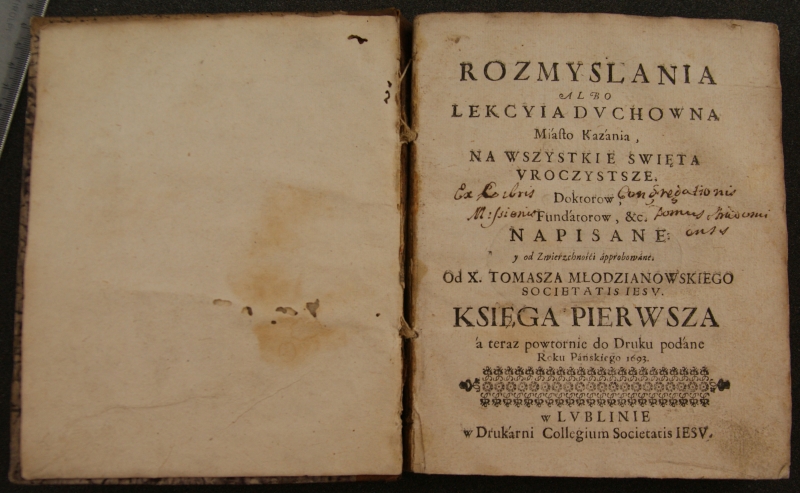 ROZMYSLANIA
ALBO
LEKCYIA DVCHOWNA
Miásto Kazánia,
NA WSZYSTKIE SWIĘTA
VROCZYSTSZE,
Ex Libris Doktorow Congregationis
Missionis Fundátorow, &c. Domus
NAPISANE:
y od Zwierzchnośći ápprobowáne.
Od X. TOMASZA MLODZIANOWSKIEGO
SOCIETATIS IESV.
KSIĘGA PIERWSZA
á teraz powtornie do Druku podáne
Roku Páńskiego 1693.
w LVBLINIE
w Drukárni Collegium Societatis IESV.